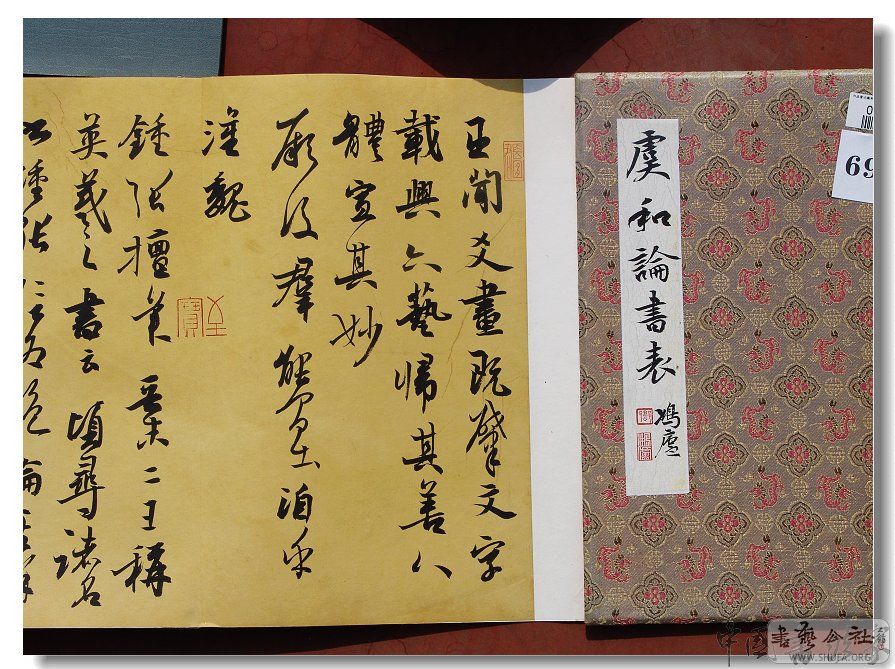 虞和論書表
鳩廬
69
臣聞爻畫既肇文字
載興六藝歸其善八
體宣其妙
厥後羣能間出洎乎
漢魏
鍾張擅美晉末二王稱
英羲之書云頃尋諸名
鍾張信為絕倫
至寶
書藝公社
WWW.SHUFA.ORG